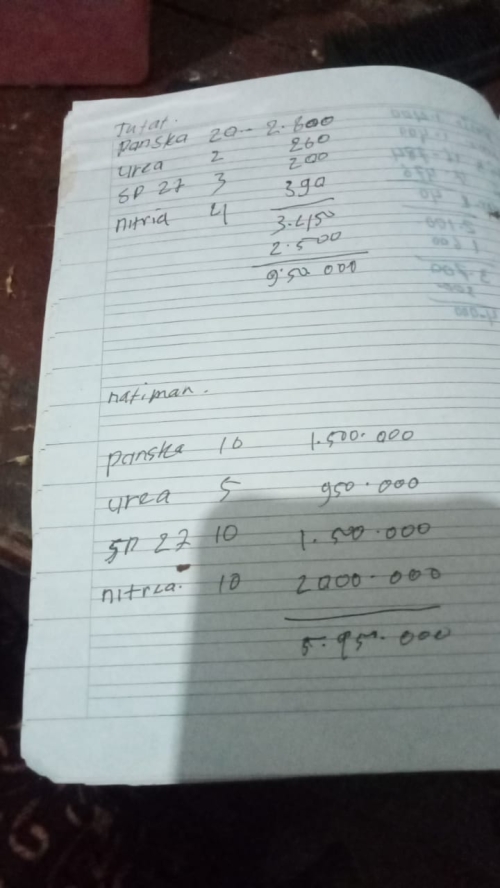 Tutar.
panska 20 -- 2.800
urea 2 260
SP 27 3 200
nitria 4 390
3.450
2.500
950 000
natiman.
panska 10 1.500.000
urea 5 950.000
SP 27 10 1.500.000
nitrea. 10 2000.000
5.950.000